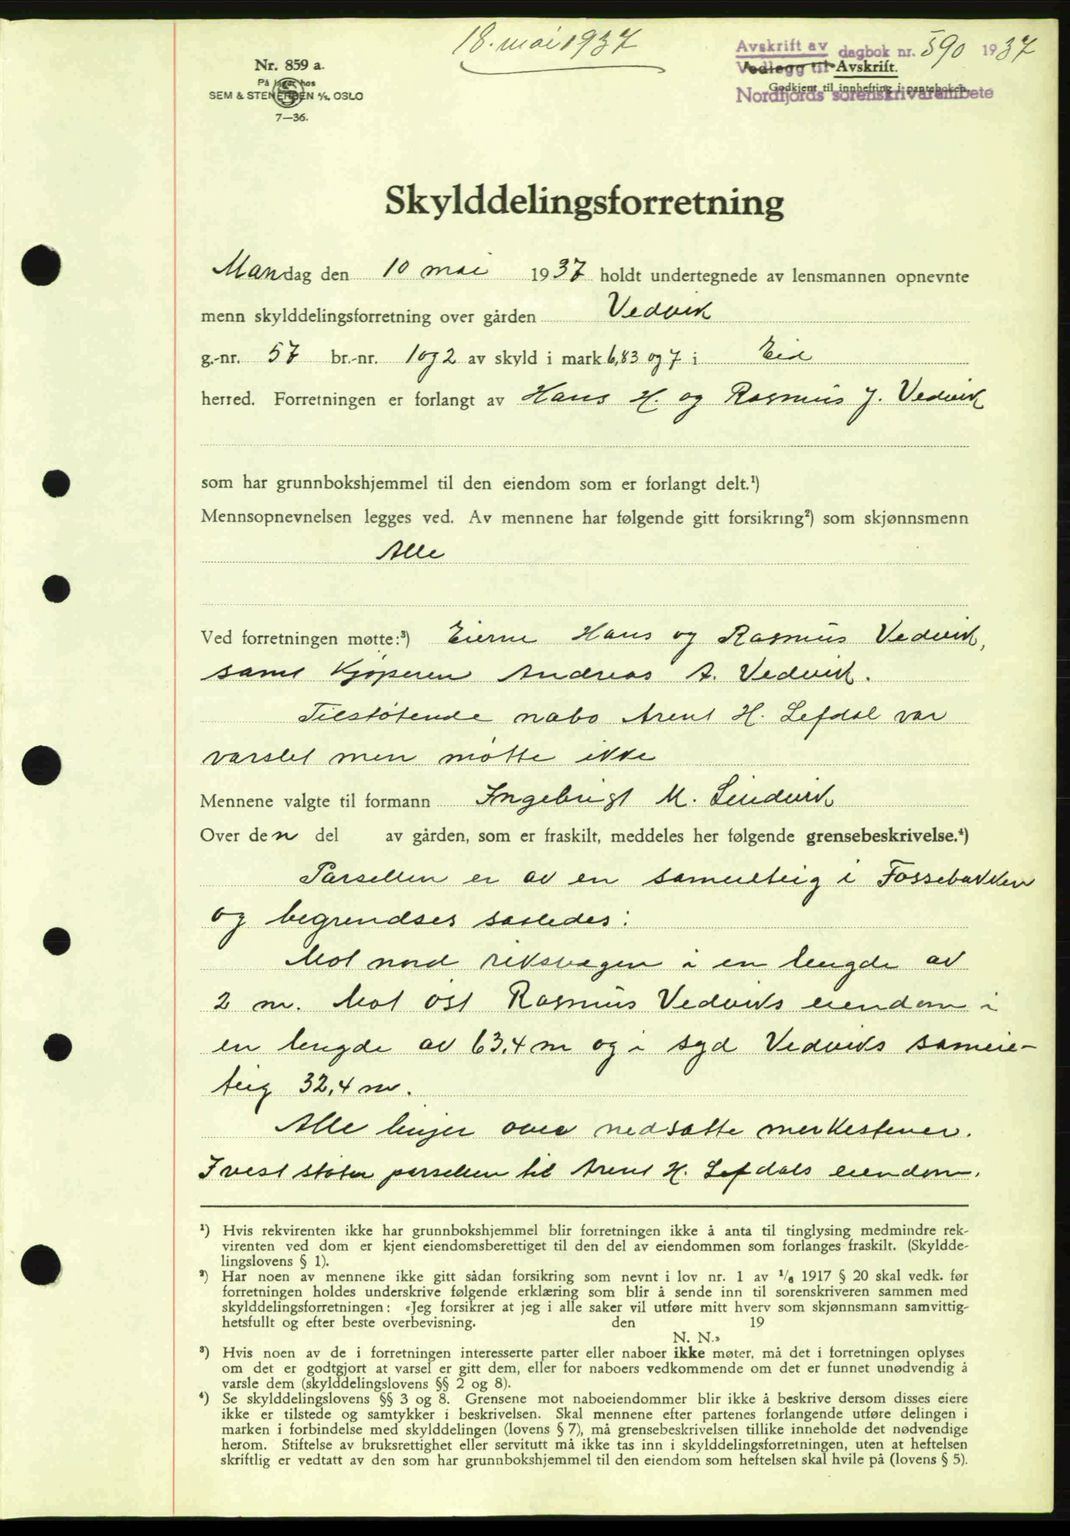 18. mai 1937
Avskrift av dagbok nr. 590 1937
Vedlegg til Avskrift.
Godkjent til innhefting i panteboken.
Nordfjords sorenskrivarembete
Nr. 859 a.
På lager hos
SEM & STENERSEN A/S, OSLO
7—36.
Skylddelingsforretning
Mandag den 10 mai 1937 holdt undertegnede av lensmannen opnevnte
menn skylddelingsforretning over gården Vedvik
g.-nr. 57 br.-nr. 1 og 2 av skyld i mark 6,83 og 7 i Eid
herred. Forretningen er forlangt av Hans H. og Rasmus J. Vedvik
som har grunnbokshjemmel til den eiendom som er forlangt delt.¹)
Mennsopnevnelsen legges ved. Av mennene har følgende gitt forsikring²) som skjønnsmenn
Alle
Ved forretningen møtte:³) Eierne Hans og Rasmus Vedvik,
samt kjøperen Andreas A. Vedvik.
Tilstøtende nabo Arent H. Lefdal var
varslet men møtte ikke
Mennene valgte til formann Ingebrigt M. Lindvik
Over den del av gården, som er fraskilt, meddeles her følgende grensebeskrivelse.⁴)
Parsellen er av en sameieteig i Fossebakken
og begrendses saaledes:
Mot nord riksvegen i en lengde av
2 m. Mot öst Rasmus Vedviks eiendom i
en lengde av 63,4 m og i syd Vedviks sameie-
teig 32,4 m.
Alle linjer over nedsatte merkestener.
I vest støter parsellen til Arent H. Lefdals eiendom.
¹) Hvis rekvirenten ikke har grunnbokshjemmel blir forretningen ikke å anta til tinglysing medmindre rek-
virenten ved dom er kjent eiendomsberettiget til den del av eiendommen som forlanges fraskilt. (Skyldde-
lingslovens § 1).
²) Har noen av mennene ikke gitt sådan forsikring som nevnt i lov nr. 1 av 1/6 1917 § 20 skal vedk. før
forretningen holdes underskrive følgende erklæring som blir å sende inn til sorenskriveren sammen med
skylddelingsforretningen: «Jeg forsikrer at jeg i alle saker vil utføre mitt hverv som skjønnsmann samvittig-
hetsfullt og efter beste overbevisning. den 19
N. N.»
³) Hvis noen av de i forretningen interesserte parter eller naboer ikke møter, må det i forretningen oplyses
om det er godtgjort at varsel er gitt dem, eller for naboers vedkommende om det er funnet unødvendig å
varsle dem (skylddelingslovens §§ 2 og 8).
⁴) Se skylddelingslovens §§ 3 og 8. Grensene mot naboeiendommer blir ikke å beskrive dersom disses eiere
ikke er tilstede og samtykker i beskrivelsen. Skal mennene efter partenes forlangende utføre delingen i
marken i forbindelse med skylddelingen (lovens § 7), må grensebeskrivelsen tillike inneholde det nødvendige
herom. Stiftelse av bruksrettighet eller servitutt må ikke tas inn i skylddelingsforretningen, uten at heftelsen
skriftlig er vedtatt av den som har grunnbokshjemmel til den eiendom som heftelsen skal hvile på (lovens § 5).